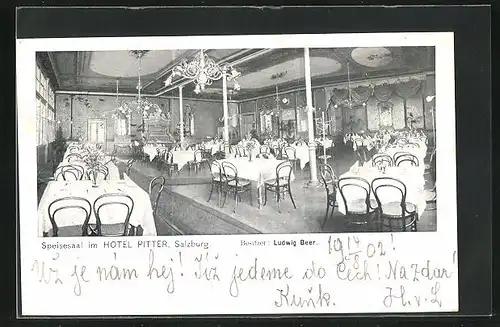 Speisesaal im HOTEL PITTER, Salzburg. Besitzer: Ludwig Beer.
02!
Už je nám hej! Již jedeme do Čech! Nazdar!
H. v. L